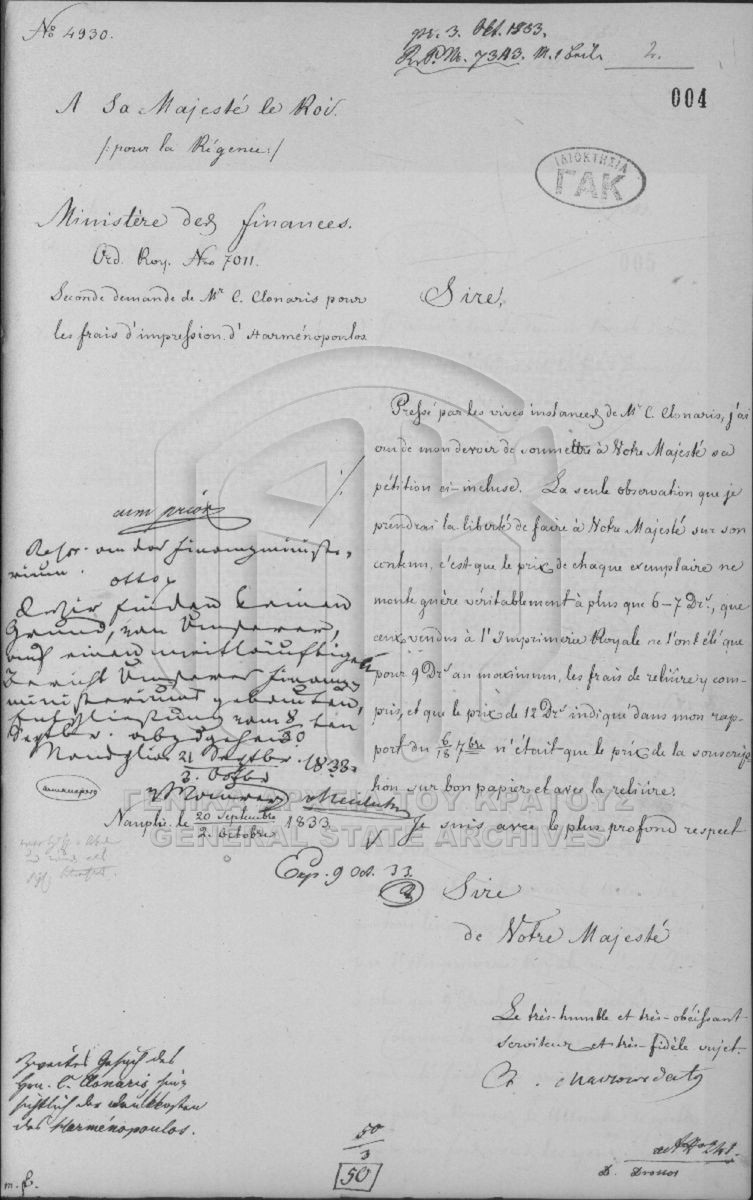 No 4930.
pr. 3. Okt. 1833.
R. P. Nr. 7343. M. 1 Beil.
2.
004
A Sa Majesté le Roi.
/: pour la Régence :/
ΙΔΙΟΚΤΗΣΙΑ
ΓΑΚ
Ministère des finances.
Ord. Roy. Nro 7011.
Seconde demande de Mr C. Clonaris pour
les frais d'impression d'Harménopoulos.
Sire,
Pressé par les vives instances de Mr C. Clonaris, j'ai
cru de mon devoir de soumettre à Votre Majesté sa
pétition ci-incluse. La seule observation que je
prendrai la liberté de faire à Votre Majesté sur son
contenu, c'est que le prix de chaque exemplaire ne
monte guère véritablement à plus que 6-7 Drs, que
ceux vendus à l'Imprimerie Royale ne l'ont été que
pour 9 Drs au maximum, les frais de reliûre y com-
pris, et que le prix de 12 Drs indiqué dans mon rap-
port du 6/18 7bre n'était que le prix de la souscrip-
tion sur bon papier et avec la reliûre.
Je suis avec le plus profond respect
Sire
de Votre Majesté
Le très-humble et très-obéissant
serviteur et très-fidèle sujet.
A. Mavrocordato
cum prior.
Rescr. an das Finanzministe-
rium.
Otto p
Wir finden keinen
Grund, von Unserer,
auf einen weitläuftigen
Bericht Unseres Finanz-
ministeriums gebauten,
Entschliessung vom 8/20 ten
Septbr. abzugehen.
Nauplia 21 Septbr. 1833.
3. Octbr
Nauplie le 20 Septembre 1833
2. octobre
Exp. 9 Oct. 33.
ΓΕΝΙΚΑ ΑΡΧΕΙΑ ΤΟΥ ΚΡΑΤΟΥΣ
GENERAL STATE ARCHIVES
Zweites Gesuch des
Hrn. C. Clonaris, hin-
sichtlich der Druckkosten
des Harmenopoulos.
50
3
50
ad No 241.
D. Drossos
m. f.